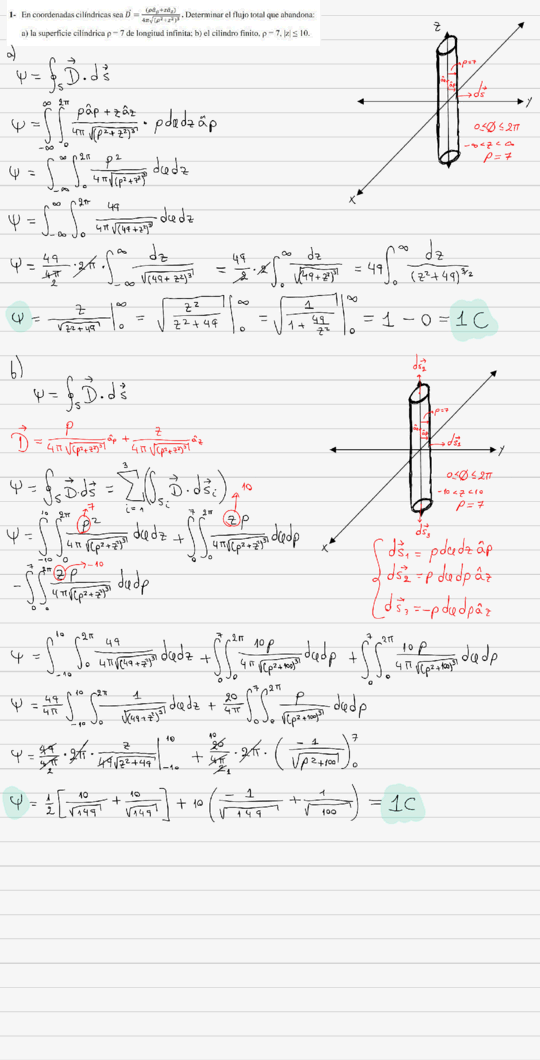 1- En coordenadas cilíndricas sea D⃗ = (ρâρ+zâz)/(4π√(ρ²+z²)³). Determinar el flujo total que abandona:
a) la superficie cilíndrica ρ = 7 de longitud infinita; b) el cilindro finito, ρ = 7, |z| ≤ 10.
a)
Ψ = ∮s D⃗ . ds⃗
Ψ = ∫_{-∞}^{∞} ∫_0^{2π} (ρâρ + zâz)/(4π√(ρ²+z²)³) • ρdφdz âρ
Ψ = ∫_{-∞}^{∞} ∫_0^{2π} ρ²/(4π√(ρ²+z²)³) dφdz
Ψ = ∫_{-∞}^{∞} ∫_0^{2π} 49/(4π√(49+z²)³) dφdz
Ψ = 49/4π · 2π · ∫_{-∞}^{∞} dz/√(49+z²)³ = 49/2 · 2 ∫_0^{∞} dz/√(49+z²)³ = 49 ∫_0^{∞} dz/(z²+49)^{3/2}
Ψ = z/√(z²+49) |_0^∞ = √(z²/(z²+49)) |_0^∞ = √(1/(1+49/z²)) |_0^∞ = 1 - 0 = 1C
z
ρ=7
âρ
ds⃗
y
x
0≤Ø≤2π
-∞<z<∞
ρ=7
b)
Ψ = ∮s D⃗ . ds⃗
D⃗ = ρ/(4π√(ρ²+z²)³) âρ + z/(4π√(ρ²+z²)³) âz
Ψ = ∮s D⃗.ds⃗ = Σ_{i=1}^{3} (∫si D⃗ . ds⃗i)
Ψ = ∫_{-10}^{10} ∫_0^{2π} ρ²/(4π√(ρ²+z²)³) dφdz + ∫_0^7 ∫_0^{2π} zρ/(4π√(ρ²+z²)³) dφdρ
7
10
- ∫_0^7 ∫_0^{2π} zρ/(4π√(ρ²+z²)³) dφdρ
-10
ds⃗2
ρ=7
âρ
ds⃗1
y
x
ds⃗3
0≤Ø≤2π
-10<z<10
ρ=7
ds⃗1 = ρdφdz âρ
ds⃗2 = ρdφdρ âz
ds⃗3 = -ρdφdρ âz
Ψ = ∫_{-10}^{10} ∫_0^{2π} 49/(4π√(49+z²)³) dφdz + ∫_0^7 ∫_0^{2π} 10ρ/(4π√(ρ²+100)³) dφdρ + ∫_0^7 ∫_0^{2π} 10ρ/(4π√(ρ²+100)³) dφdρ
Ψ = 49/4π ∫_{-10}^{10} ∫_0^{2π} 1/√(49+z²)³ dφdz + 20/4π ∫_0^7 ∫_0^{2π} ρ/√(ρ²+100)³ dφdρ
Ψ = 49/4π · 2π · z/(49√(z²+49)) |_{-10}^{10} + 20/4π · 2π · (-1/√(ρ²+100))_0^7
Ψ = 1/2 [10/√149 + 10/√149] + 10 (-1/√149 + 1/√100) = 1C